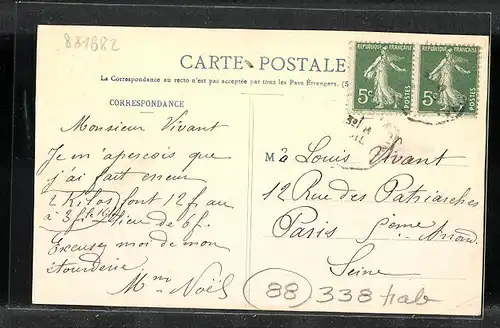 881682
CARTE POSTALE
La Correspondance au recto n'est pas acceptée par tous les Pays Étrangers. (S
RÉPUBLIQUE FRANÇAISE
5c
POSTES
RÉPUBLIQUE FRANÇAISE
5c
POSTES
CORRESPONDANCE
Monsieur Vivant
Je m'aperçois que
j'ai fait erreur
2 Kilos font 12 f au
à 3 f le Kilo lieu de 6 f.
Excusez moi de mon
étourderie
Mme Noël
M à Louis Vivant
12 Rue des Patriarches
Paris 5ème Arrond.
Seine
88 338